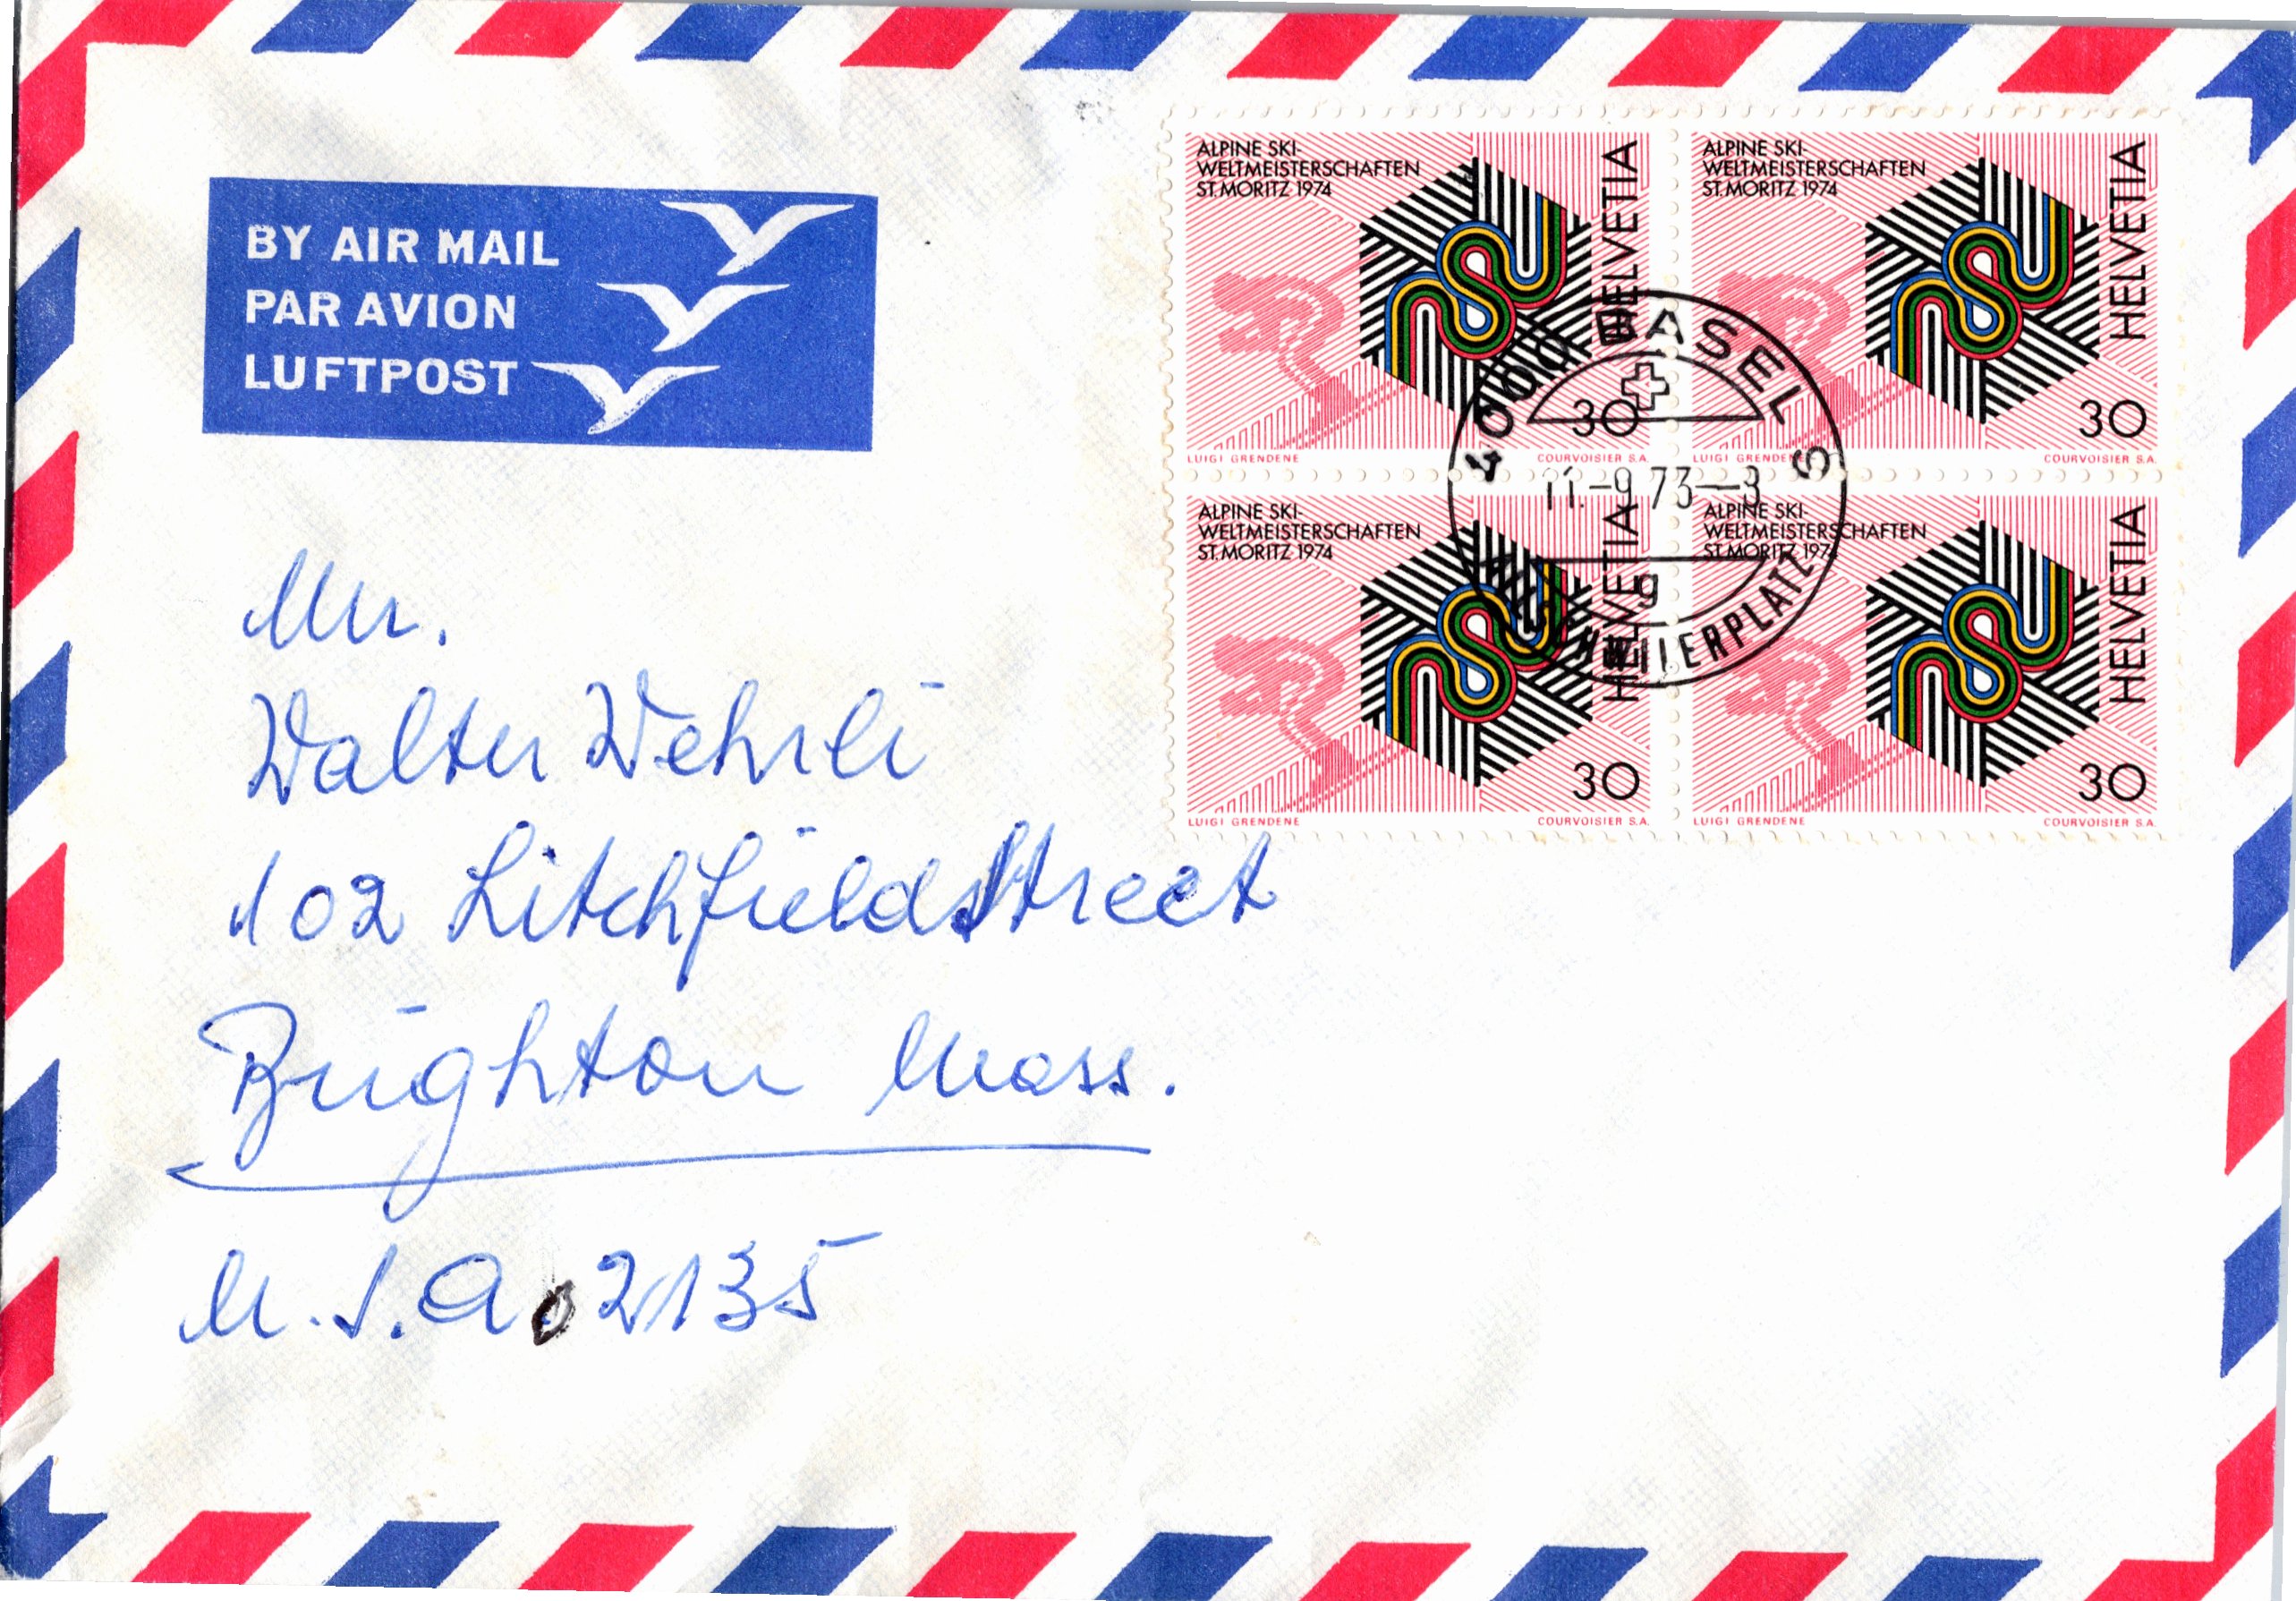 BY AIR MAIL
PAR AVION
LUFTPOST
ALPINE SKI-
WELTMEISTERSCHAFTEN
ST. MORITZ 1974
HELVETIA
30
LUIGI GRENDENE
COURVOISIER S.A.
ALPINE SKI-
WELTMEISTERSCHAFTEN
ST. MORITZ 1974
HELVETIA
30
LUIGI GRENDENE
COURVOISIER S.A.
ALPINE SKI-
WELTMEISTERSCHAFTEN
ST. MORITZ 1974
HELVETIA
30
LUIGI GRENDENE
COURVOISIER S.A.
ALPINE SKI-
WELTMEISTERSCHAFTEN
ST. MORITZ 1974
HELVETIA
30
LUIGI GRENDENE
COURVOISIER S.A.
4000 BASEL
11.-9 73
g
Mr.
Walter Wehrli
102 Litchfield Street
Brighton Mass.
U.S.A. 02135